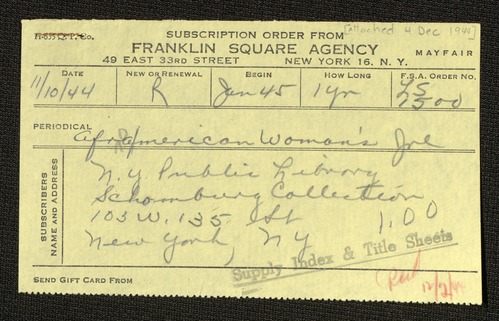 SUBSCRIPTION ORDER FROM
[attached 4 Dec 1944]
FRANKLIN SQUARE AGENCY
MAYFAIR
49 EAST 33RD STREET NEW YORK 16, N. Y.
DATE NEW OR RENEWAL BEGIN HOW LONG F.S.A. ORDER No.
11/10/44 R Jan 45 1 yr
PERIODICAL
Aframerican Woman's Jrl
SUBSCRIBERS NAME AND ADDRESS
N.Y. Public Library
Schomburg Collection
103 W. 135 St 1.00
New York, NY
Supply Index & Title Sheets
SEND GIFT CARD FROM